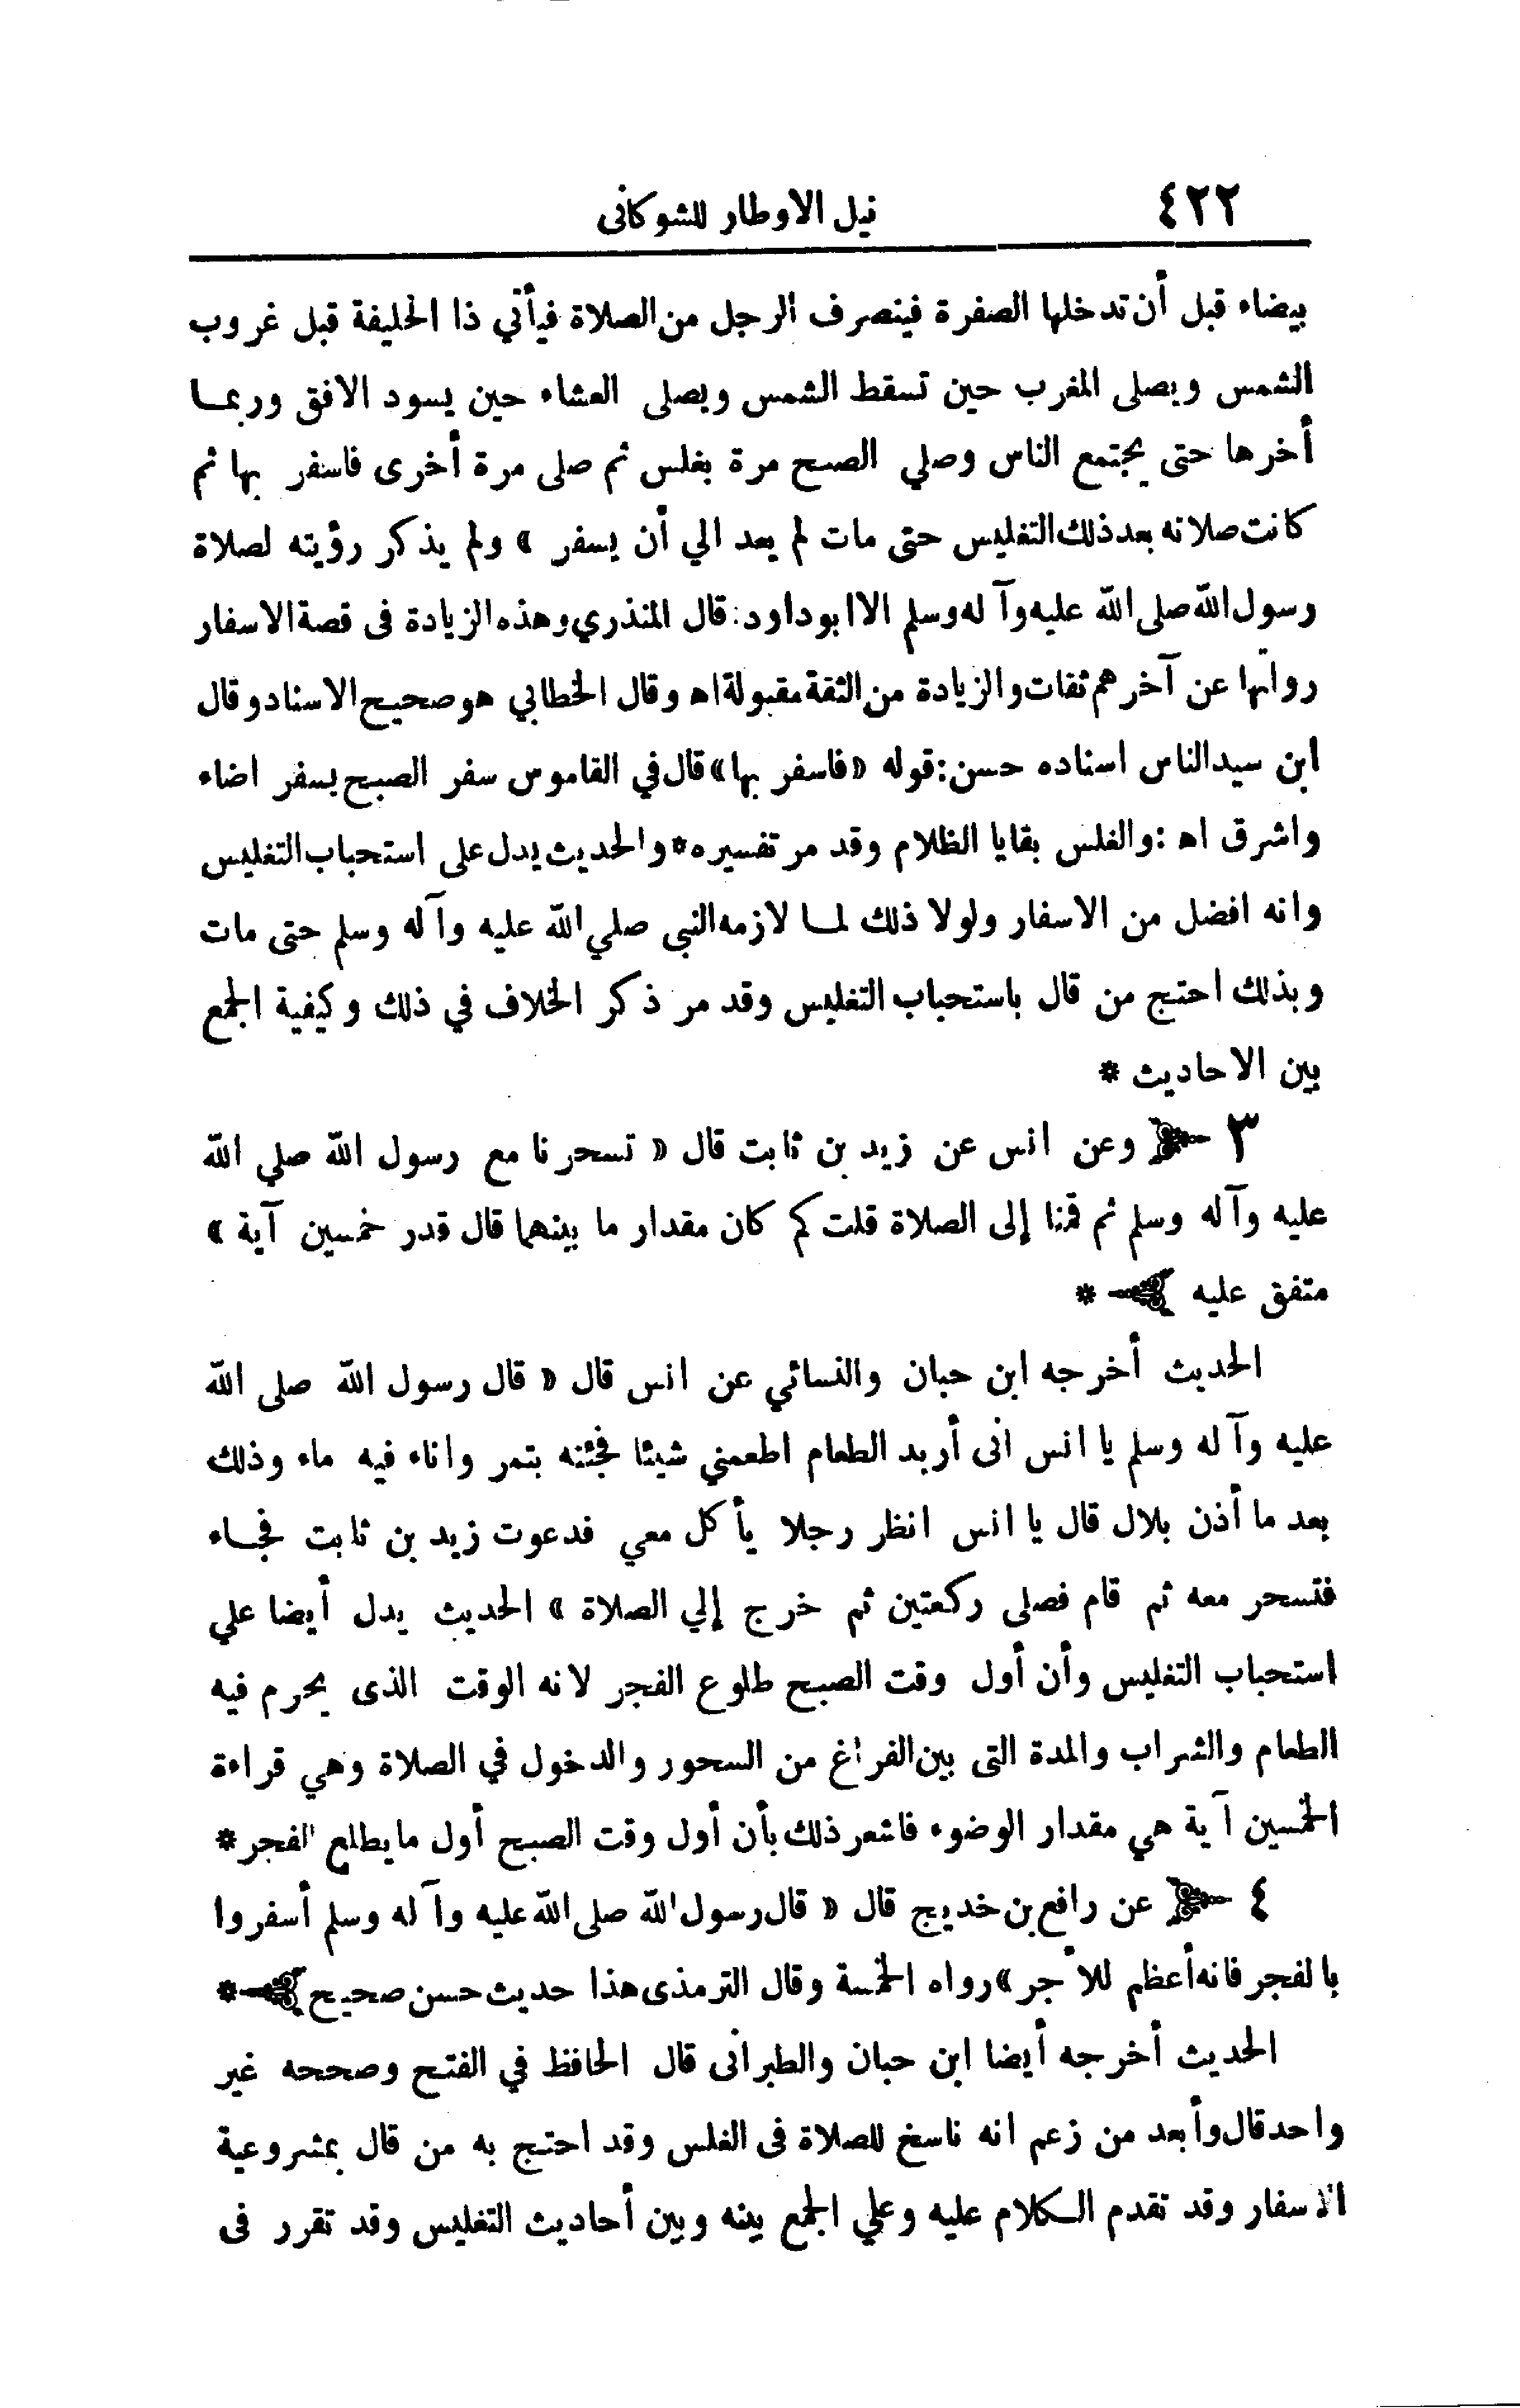 ٤٢٢ نيل الاوطار للشوكانى
بيضاء قبل أن تدخلها الصفرة فينصرف الرجل من الصلاة فيأتي ذا الحليفة قبل غروب
الشمس ويصلى المغرب حين تسقط الشمس ويصلى العشاء حين يسود الافق وربمـا
أخرها حتى يجتمع الناس وصلي الصبح مرة بغلس ثم صلى مرة أخرى فاسفر بها ثم
كانت صلاته بعد ذلك التغليس حتى مات لم يعد الي أن يسفر » ولم يذكر رؤيته لصلاة
رسول الله صلى الله عليه وآله وسلم الا ابو داود: قال المنذري وهذه الزيادة فى قصة الاسفار
رواتها عن آخرهم ثقات والزيادة من الثقة مقبولة اه وقال الخطابي هو صحيح الاسناد وقال
ابن سيد الناس اسناده حسن: قوله « فاسفر بها » قال في القاموس سفر الصبح يسفر اضاء
واشرق اه : والغلس بقايا الظلام وقد مر تفسيره * والحديث يدل على استحباب التغليس
وانه افضل من الاسفار ولولا ذلك لمـا لازمه النبى صلي الله عليه وآله وسلم حتى مات
وبذلك احتج من قال باستحباب التغليس وقد مر ذكر الخلاف في ذلك وكيفية الجمع
بين الاحاديث *
٣ وعن انس عن زيد بن ثابت قال « تسحرنا مع رسول الله صلي الله
عليه وآله وسلم ثم قمنا إلى الصلاة قلت كم كان مقدار ما بينهما قال قدر خمسين آية »
متفق عليه *
الحديث أخرجه ابن حبان والنسائي عن انس قال « قال رسول الله صلى الله
عليه وآله وسلم يا انس انى أريد الطعام اطعمني شيئا فجئته بتمر واناء فيه ماء وذلك
بعد ما أذن بلال قال يا انس انظر رجلا يأكل معي فدعوت زيد بن ثابت فجـاء
فتسحر معه ثم قام فصلى ركعتين ثم خرج إلي الصلاة » الحديث يدل أيضا علي
استحباب التغليس وأن أول وقت الصبح طلوع الفجر لانه الوقت الذى يحرم فيه
الطعام والشراب والمدة التى بين الفراغ من السحور والدخول في الصلاة وهي قراءة
الخمسين آية هي مقدار الوضوء فاشعر ذلك بأن أول وقت الصبح أول ما يطلع الفجر *
٤ عن رافع بن خديج قال « قال رسول الله صلى الله عليه وآله وسلم أسفروا
بالفجر فانه أعظم للأجر » رواه الخمسة وقال الترمذى هذا حديث حسن صحيح *
الحديث أخرجه أيضا ابن حبان والطبرانى قال الحافظ في الفتح وصححه غير
واحد قال وأبعد من زعم انه ناسخ للصلاة فى الغلس وقد احتج به من قال بمشروعية
الاسفار وقد تقدم الـكلام عليه وعلي الجمع بينه وبين أحاديث التغليس وقد تقرر فى